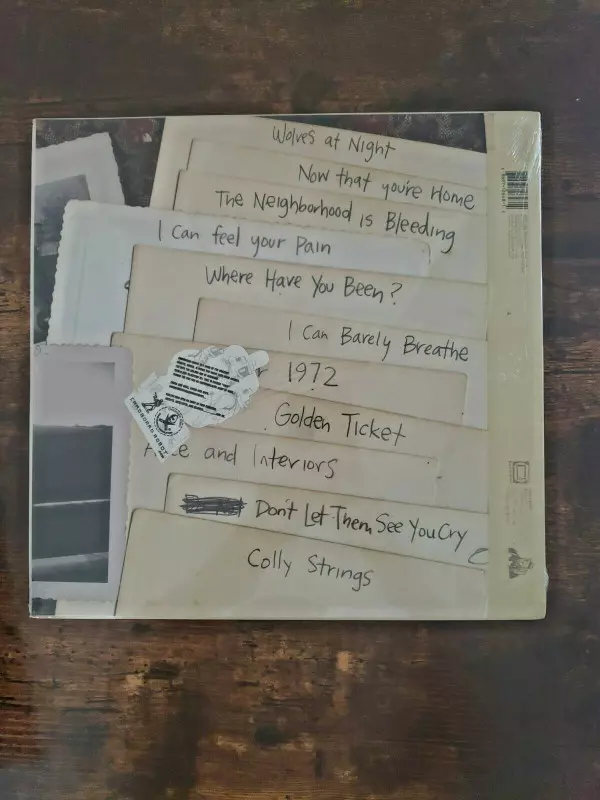 Wolves at Night
Now that you're Home
The Neighborhood is Bleeding
I Can feel your Pain
Where Have You Been?
I Can Barely Breathe
1972
Golden Ticket
and Interiors
Don't Let Them See You Cry
Colly Strings